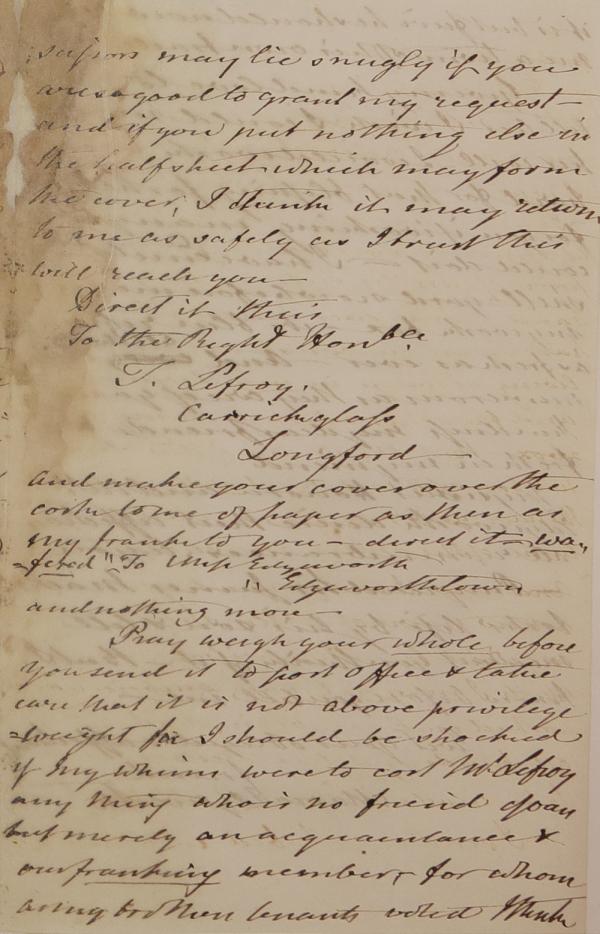 may lie snugly if you
are so good to grant my request –
and if you put nothing else in
the half sheet which may form
the cover, I think it may return
to me as safely as I trust this
will reach you –
Direct it thus
To the Right Honble
T. Lefroy.
Carrickglass
Longford
and make your cover over the
to me of paper as thin as
my frank to you – direct it wa„
„fered" "To Miss Edgeworth
" Edgeworthtown
and nothing more –
Pray weigh your whole before
you send it to post office & take
care that it is not above privilege
=weight for I should be shocked
if my whims were to cost Mr. Lefroy
any thing who is no friend of our
but merely an acquaintance &
our franking member, for whom
my brother tenants voted I think